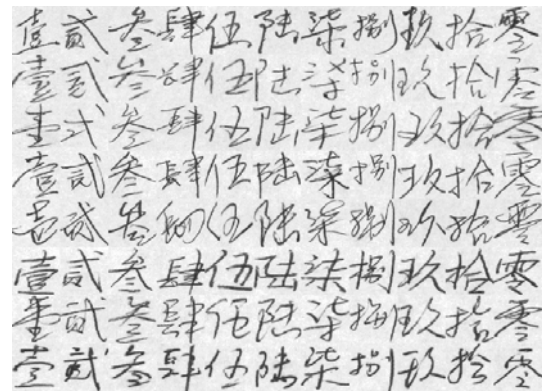 壹贰叁肆伍陆柒捌玖拾零
壹贰叁肆伍陆柒捌玖拾零
壹贰叁肆伍陆柒捌玖拾零
壹贰叁肆伍陆柒捌玖拾零
壹贰叁肆伍陆柒捌玖拾零
壹贰叁肆伍陆柒捌玖拾零
壹贰叁肆伍陆柒捌玖拾零
壹贰叁肆伍陆柒捌玖拾零